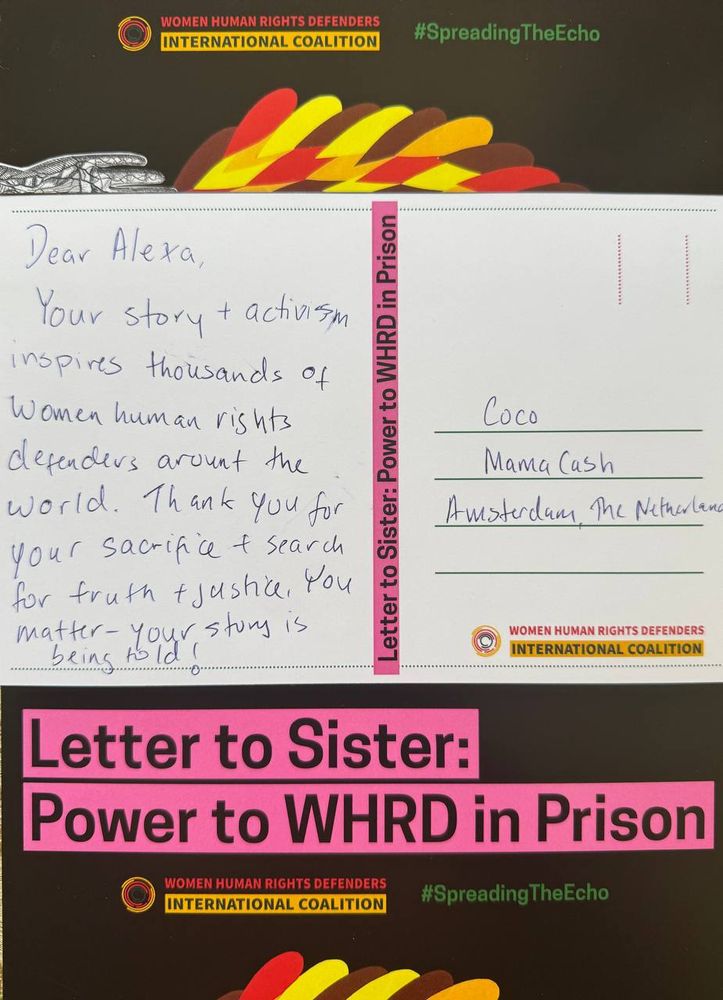 WOMEN HUMAN RIGHTS DEFENDERS
INTERNATIONAL COALITION
#SpreadingTheEcho
Dear Alexa,
Your story + activism
inspires thousands of
women human rights
defenders arount the
world. Thank you for
your sacrifice + search
for truth + justice. You
matter - your story is
being told!
Letter to Sister: Power to WHRD in Prison
Coco
Mama Cash
Amsterdam, The Netherland
WOMEN HUMAN RIGHTS DEFENDERS
INTERNATIONAL COALITION
Letter to Sister:
Power to WHRD in Prison
WOMEN HUMAN RIGHTS DEFENDERS
INTERNATIONAL COALITION
#SpreadingTheEcho